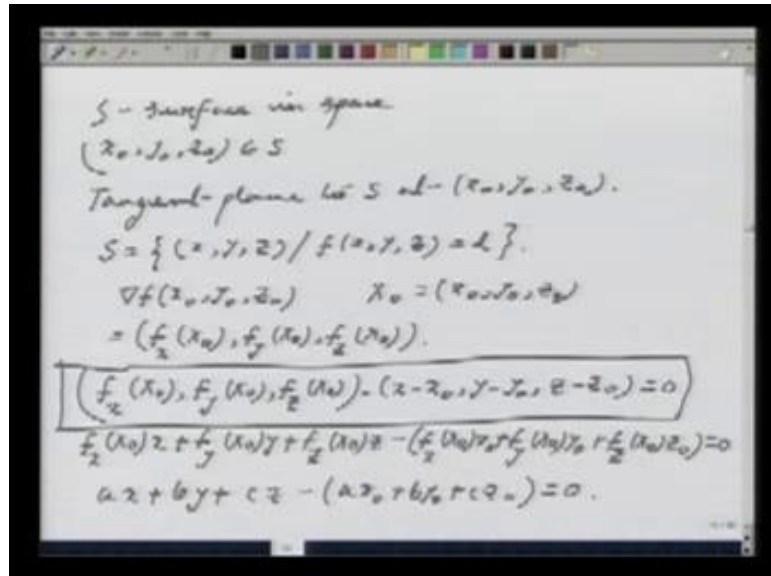 S - surface in space
(x₀, y₀, z₀) ∈ S
Tangent-plane to S at (x₀, y₀, z₀).
S = { (x, y, z) / f(x, y, z) = k }.
∇f(x₀, y₀, z₀)    X₀ = (x₀, y₀, z₀)
= (f_x(X₀), f_y(X₀), f_z(X₀)).
(f_x(X₀), f_y(X₀), f_z(X₀)) . (x-x₀, y-y₀, z-z₀) = 0
f_x(X₀)x + f_y(X₀)y + f_z(X₀)z - (f_x(X₀)x₀ + f_y(X₀)y₀ + f_z(X₀)z₀) = 0
ax + by + cz - (ax₀ + by₀ + cz₀) = 0.